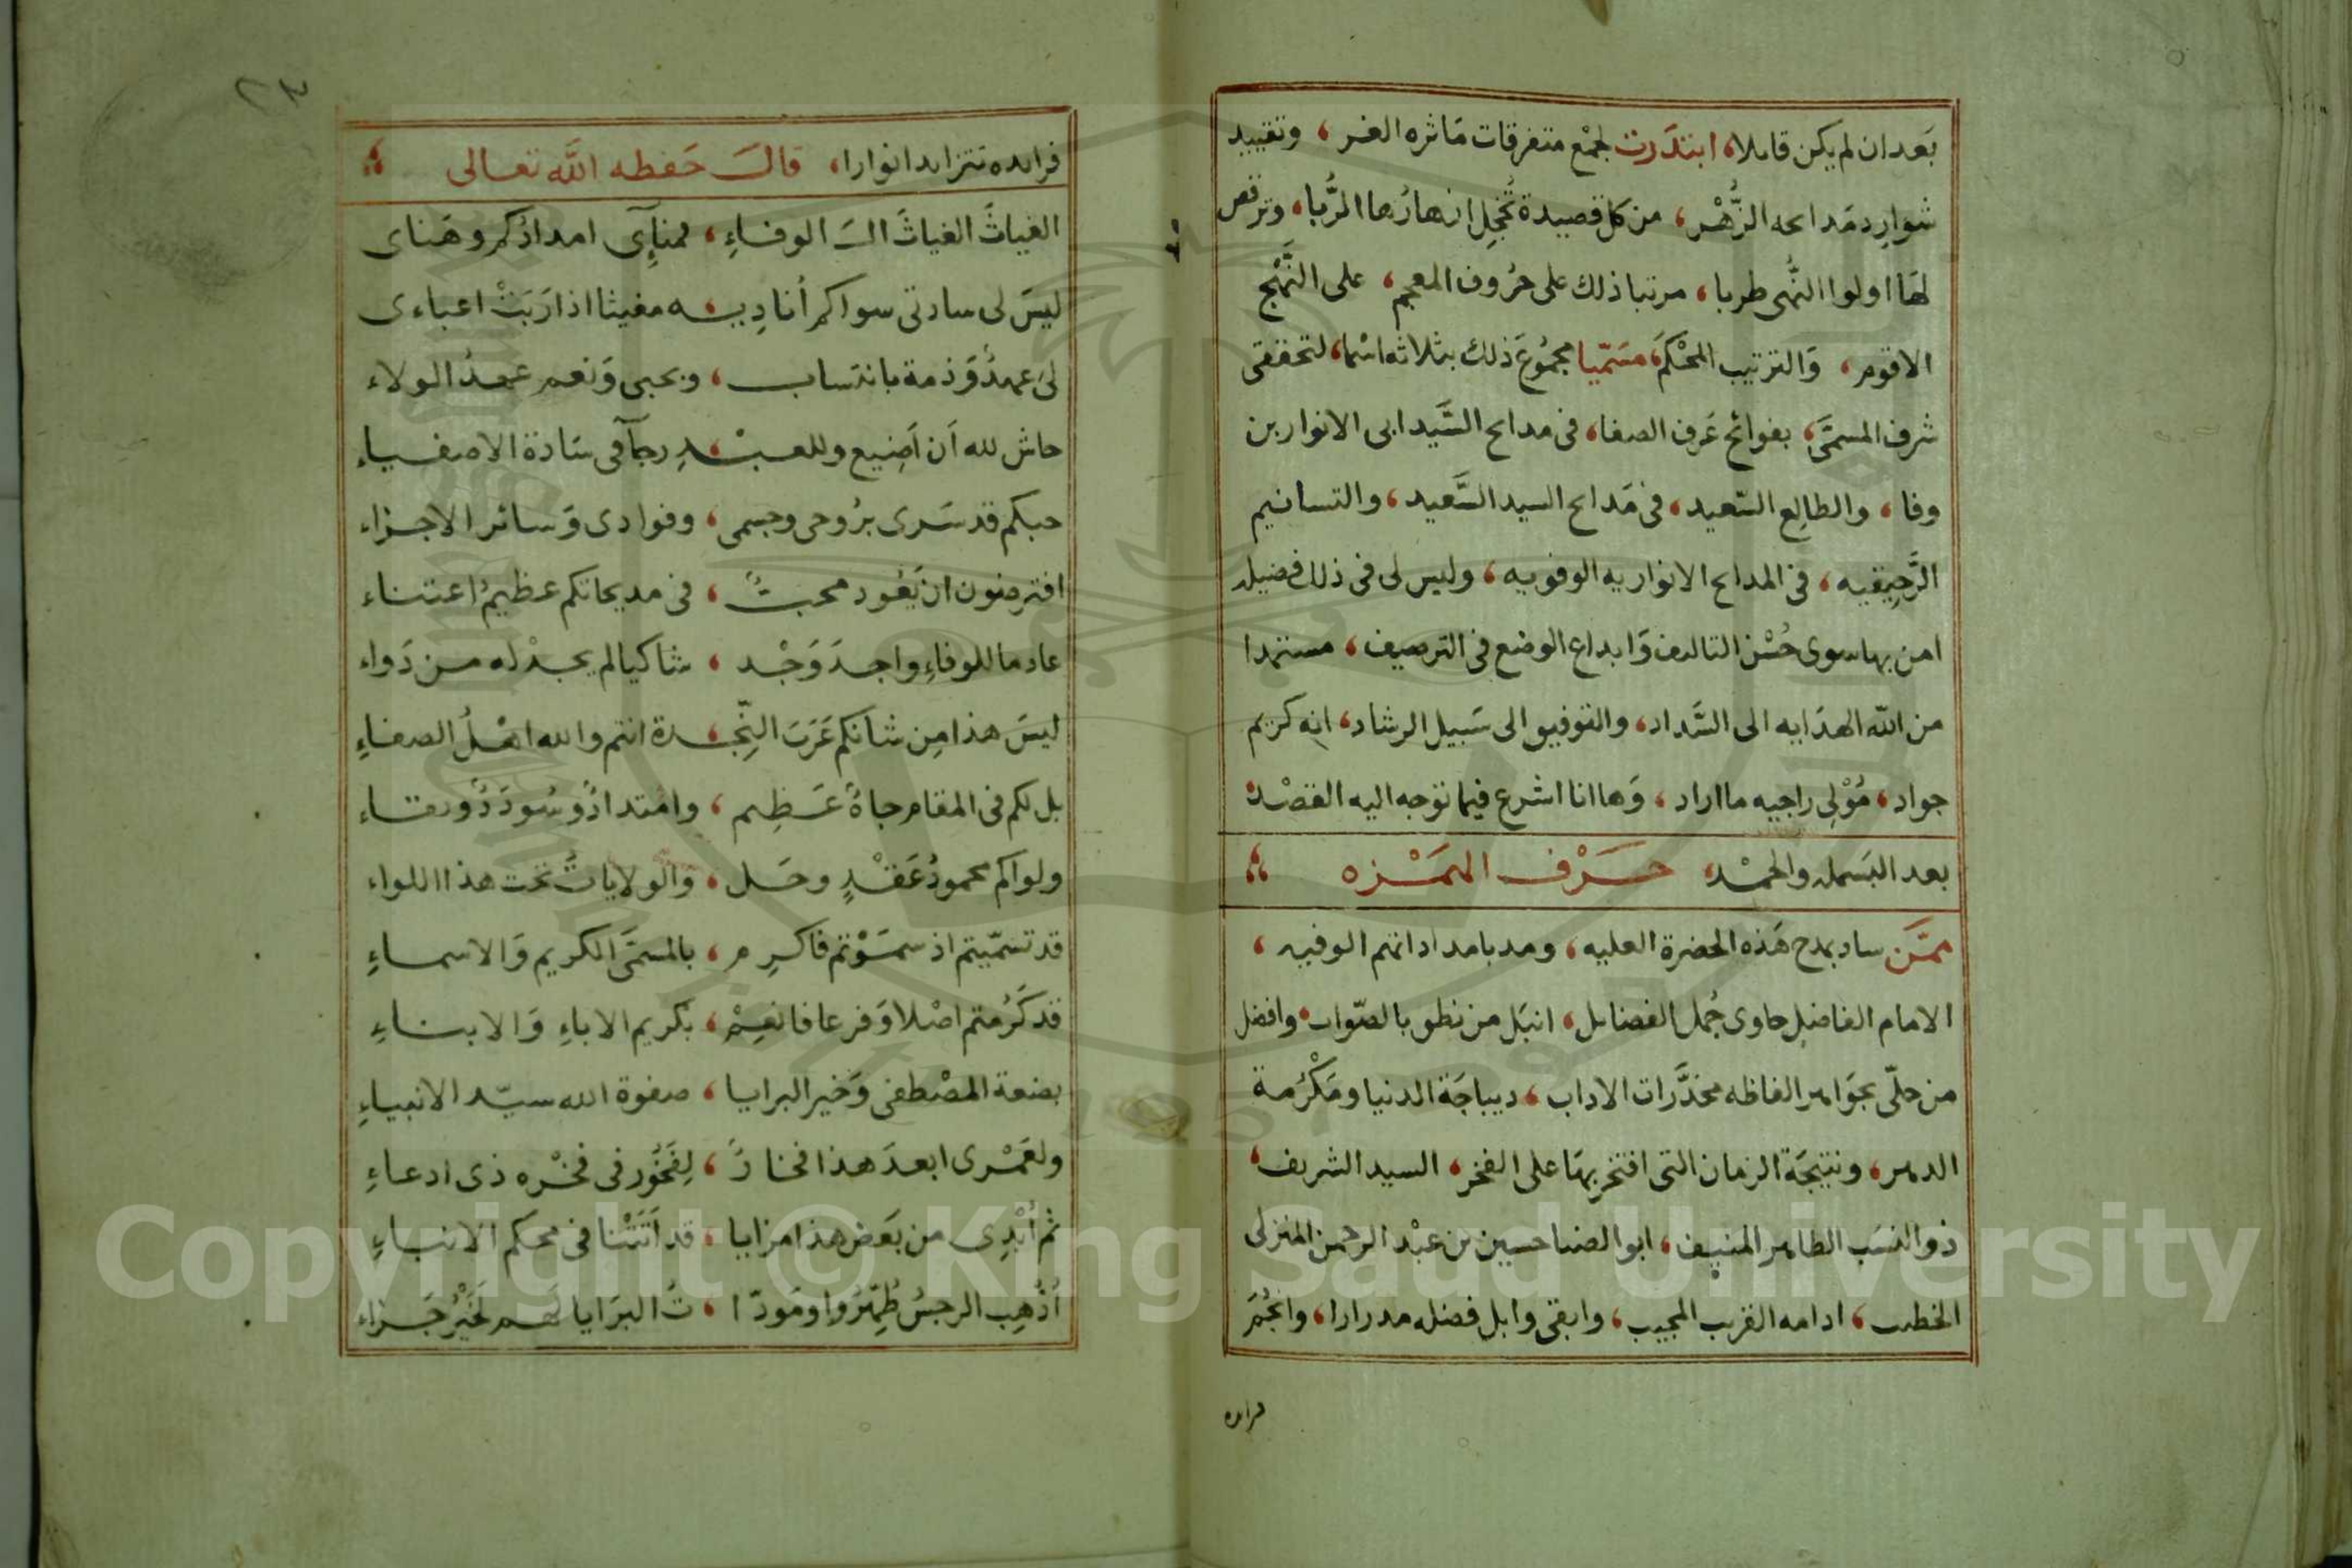 بَعد ان لم يكن قابلا، ابتدَرت لجمْع متفرقات مَاثره الغر، وتقييد
شوارِد مَدايحه الزُّهْر، من كل قصيدة تُخجِل ازهارُها الرُّبا، وترقص
لهَا اولوا النُّهى طربا، مرتبا ذلك على حرُوف المعجم، على النَّهْج
الاقوم، وَالترتيب المحْكَم، مسَمّيا مجمُوعَ ذلك بثلاثه اسْما، لتحققى
شرف المسمَّى، بفوائح عَرف الصفا، فى مدايح السَّيد ابى الانوار بن
وفا، والطالِع السّعيد، فى مَدايح السيد السَّعيد، والتسانيم
الرَّحِيقيه، فى المدايح الانواريه الوفويه، وليس لى فى ذلك فضيله
امن بها سوى حُسْن التاليف وَابداع الوضع فى الترصيف، مستمدا
من الله الهدَايه الى السَّداد، والتوفيق الى سَبيل الرشاد، انه كريم
جواد، مُوْلِى راجيه ما اراد، وَها انا اشرع فيما توجه اليه القصْد
بعد البَسمله والحمْد، حَرْف الهمَمْزه
ممَّن ساد بمدح هَذه الحضرة العليه، ومد بامداداتهم الوفيه،
الامام الفاضِل حاوى جُمل الفضايل، انبَل من نطق بالصّواب، وافضل
من حلّى بجوَاهر الفاظه مخدَّرات الاداب، ديباجَة الدنيا ومَكْرُمة
الدهر، ونتيجَة الزمان التى افتخر بهَا على الفخر، السيد الشريف،
ذو النسَب الطاهر المنيف، ابو الضيا حسين بن عبْد الرحمن المنزلى
الخطيب، ادامه القريب المجيب، وابقى وابل فضله مدرارا، وانجُمَ
فرايده
٢٣
فرايده تتزايد انوارا، قالَ حَفظه اللَّه تعالى
الغياثَ الغياثَ الَ الوفاءِ، لمناىِٓ امدادُكم وهَناى
ليسَ لى سادتى سواكم أُنادِيـ، ـه مغيثا اذا رَبَتْ اعباءى
لى عهدٌ وَذمة بانتساب، وبحبى وَنعم عهدُ الولاء
حاش لله اَن اَضِيع وللعبْـ، ـدِ رجآ فى سَادة الاصفياءِ
حبكم قد سَرى برُوحى وجسمى، وفوادى وَسائر الاجزاء
افترضون ان يَعُود محبٌّ، فى مديحاتكم عظيمُ اعتناء
عادما للوفاءِ واجدَ وَجْد، شاكيا لم يجدْ له من دَواء
ليسَ هذا مِن شانكم عَرَبَ النّجـ، ـدة انتم والله اهْلُ الصفاءِ
بل لكم فى المقام جاهٌ عَظِيم، وامْتدادٌ وسُودَدٌ وبقاء
ولواكم محمودُ عَقْدٍ وحَل، وَالولاياتُ تحت هذا اللواء
قد تسمّيتم اذ سمَوْتم فاكرِم، بالمسمَّى الكريم وَالاسماءِ
قد كَرُمتم اصْلا وَفرعا فانعِمْ، بكريم الاباءِ وَالابناءِ
بضعة المصْطفى وَخير البرايا، صفوة الله سيّد الانبياءِ
ولعَمْرى ابعدَ هذا فخارٌ، لِفَخُور فى فخْره ذى ادعاءِ
ثم أُبْدِى من بَعض هذا مزايا، قد اَتَتْنا فى محكم الانباءِ
أُذْهِب الرجسُ طُهِّرُوا ومَودّا، تُ البرَايا لهم لخَيْرُ جَزاء
Copyright © King Saud University